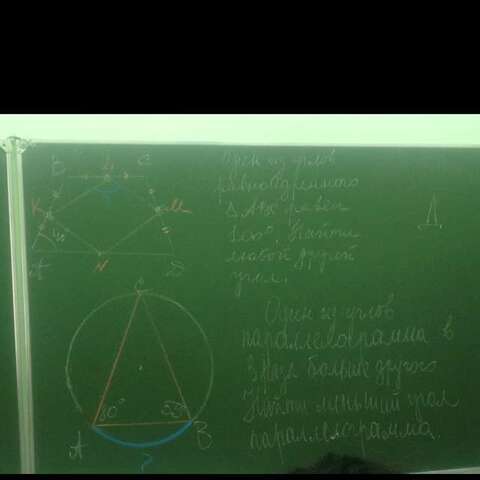 B L C
K M
A N D
Один из углов
равнобедренного
Δ ABC равен
100°. Найти
любой другой
угол.
Д.
C
80°
A B
?
Один из углов
параллелограмма в
3 раза больше другого
Найти меньший угол
параллелограмма.